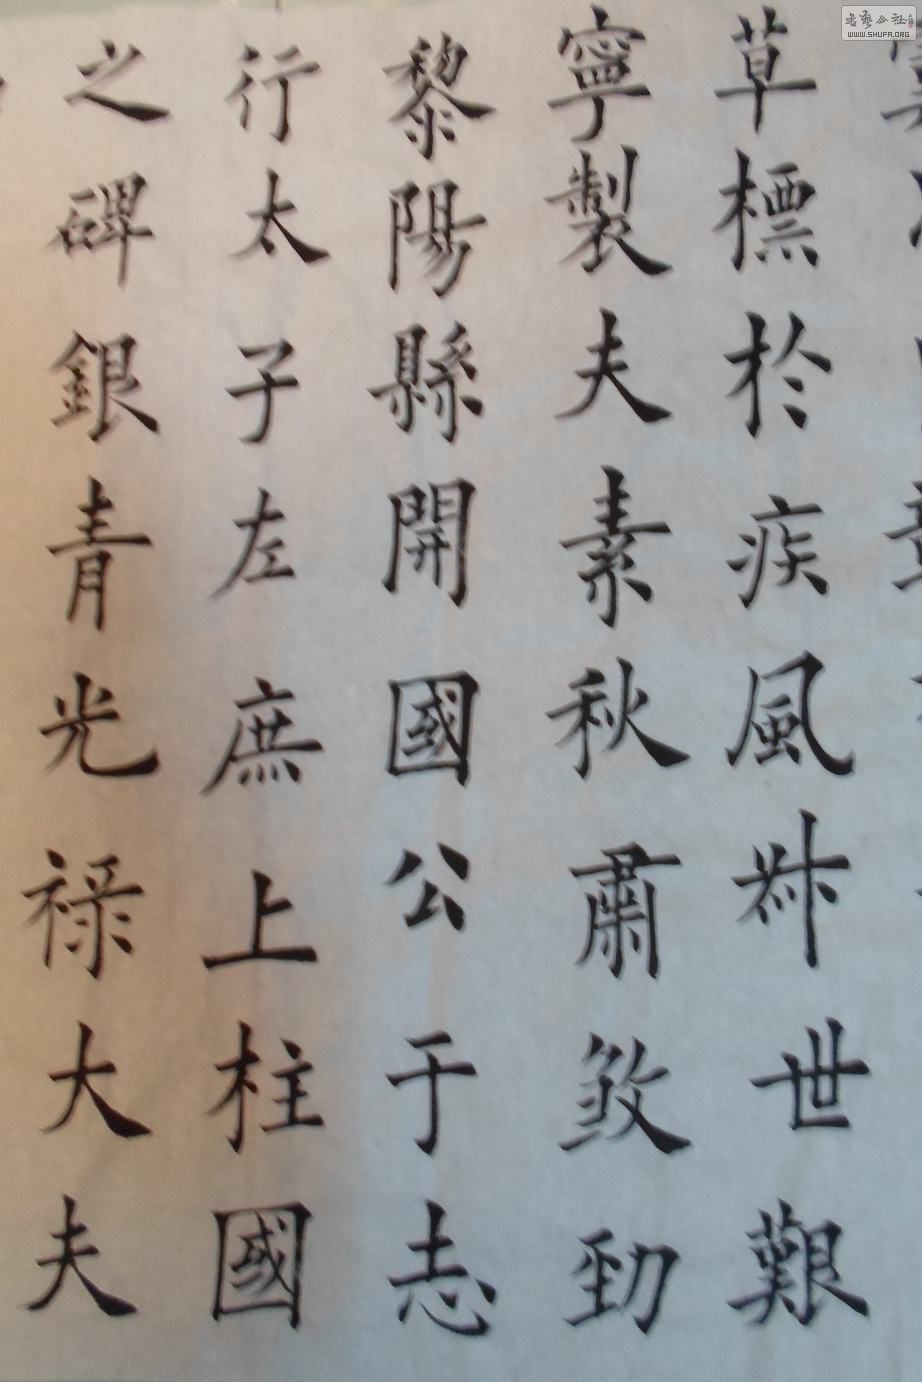 之碑銀青光祿大夫
行太子左庶上柱國
黎陽縣開國公于志
寧製夫素秋肅煞勁
草標於疾風叔世艱
WWW.SHUFA.ORG